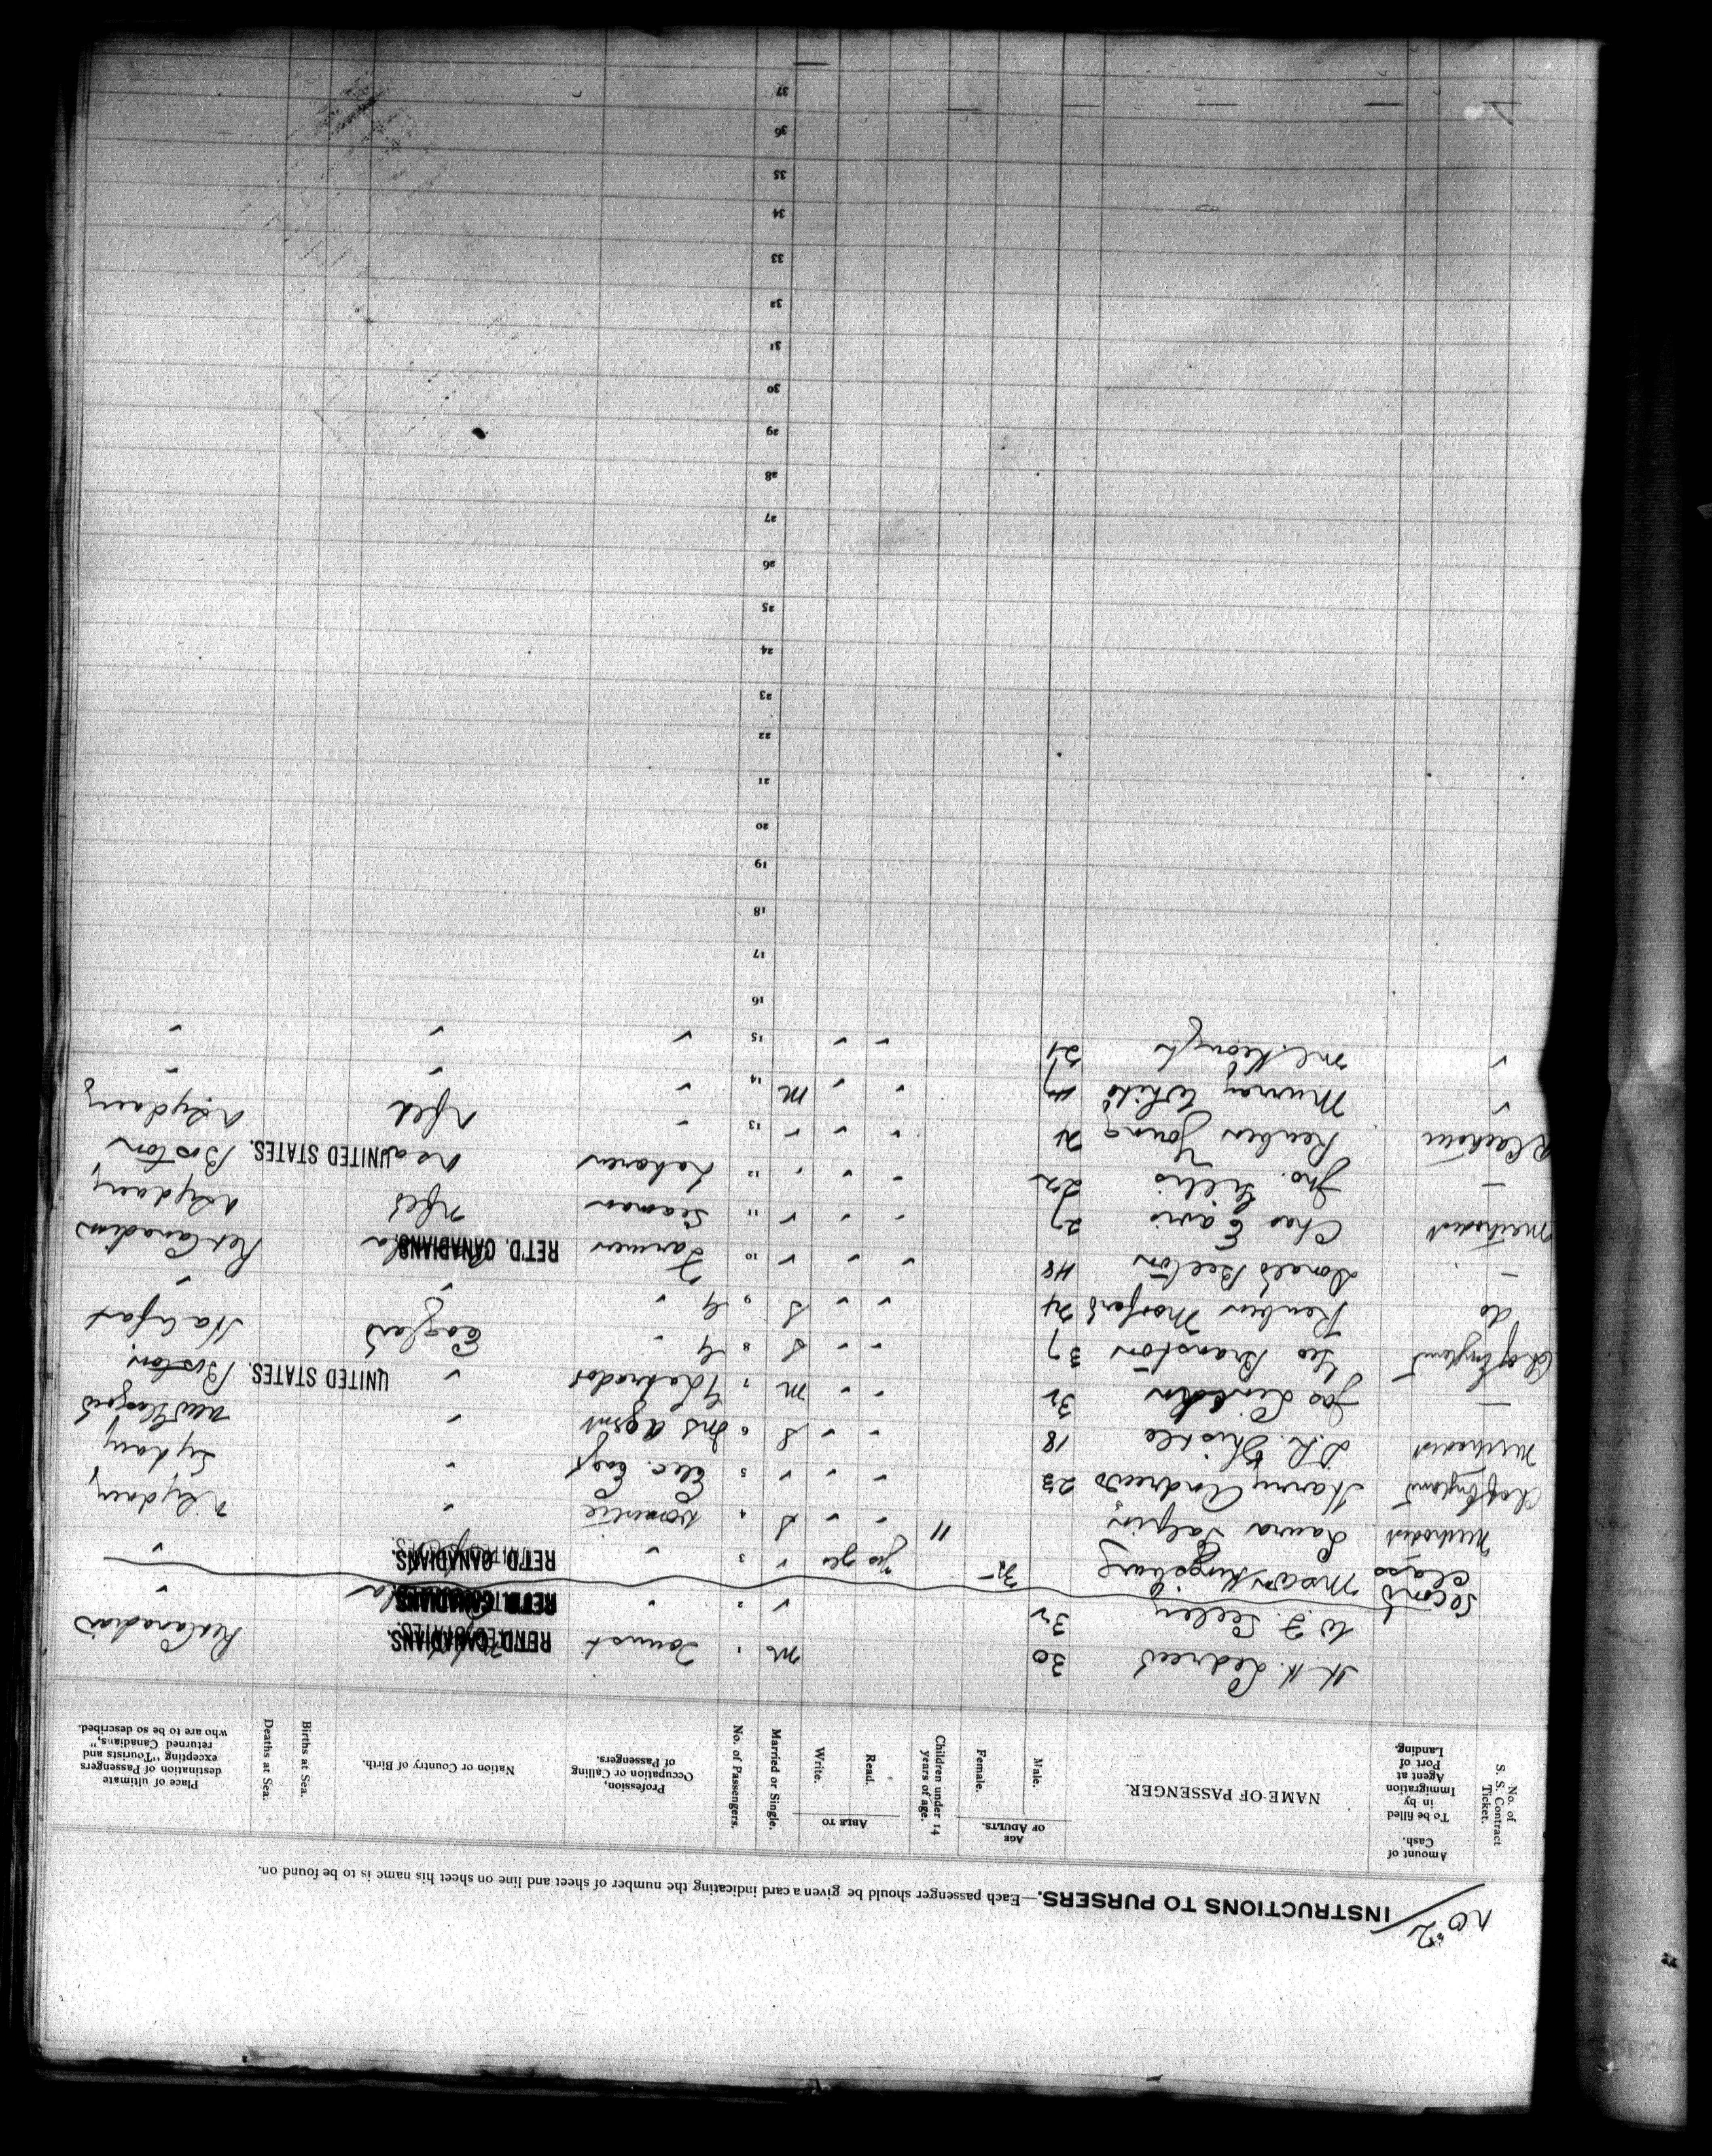 No 2
INSTRUCTIONS TO PURSERS.—Each passenger should be given a card indicating the number of sheet and line on sheet his name is to be found on.
No. of S. S. Contract Ticket.
Amount of Cash.
To be filled in by Immigration Agent at Port of Landing.
NAME OF PASSENGER.
AGE OF ADULTS.
Male.
Female.
Children under 14 years of age.
ABLE TO
Read.
Write.
Married or Single.
No. of Passengers.
Profession, Occupation or Calling of Passengers.
Nation or Country of Birth.
Births at Sea.
Deaths at Sea.
Place of ultimate destination of Passengers excepting "Tourists and returned Canadians," who are to be so described.
H. H. 30 m 1 Tourist RET'D. CANADIANS. Ret Canadian
W. F. 32 " 2 " RET'D. CANADIANS. "
Second Class
Mrs 35 yes yes " 3 " RET'D. CANADIANS. "
Methodist Laura Galpin 11 " " S 4 Domestic " N Sydney
Ch of England Harry Andrews 23 " " " 5 Elec. Engr " Sydney
Methodist D.R. Thistle 18 " " S 6 Ins Agent " New Glasgow
— Jas 32 " " m 7 " UNITED STATES. Boston
Ch of England Geo Branston 37 " " S 8 " England Halifax
do Reuben 24 " " S 9 " " "
— Donald Beeton 48 " " " 10 Farmer RET'D. CANADIANS. Ret Canadian
Methodist Chas 27 " " " 11 Seaman Nfld N Sydney
— Jno. Gillis 22 " " " 12 Laborer UNITED STATES. Boston
Reuben Young 21 " " " 13 " Nfld N Sydney
" Murray White " " m 14 " " "
" McKeough 21 " " 15 " " "
16
17
18
19
20
21
22
23
24
25
26
27
28
29
30
31
32
33
34
35
36
37